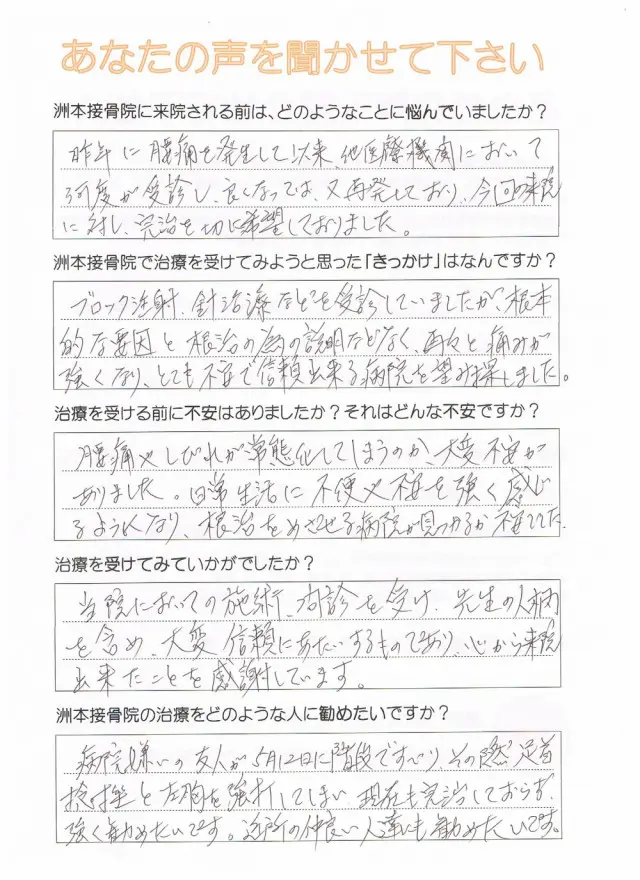 あなたの声を聞かせて下さい
洲本接骨院に来院される前は、どのようなことに悩んでいましたか?
昨年に腰痛を発生して以来、他医療機関において
何度か受診し、良くなっては、又再発しており、今回の来院
に対し、完治を切に希望しておりました。
洲本接骨院で治療を受けてみようと思った「きっかけ」はなんですか?
ブロック注射、針治療などを受診していましたが、根本
的な要因と根治の為の説明などなく、再々と痛みが
強くなり、とても不安で信頼出来る病院を望み探しました。
治療を受ける前に不安はありましたか?それはどんな不安ですか?
腰痛やしびれが常態化してしまうのか、大変不安が
ありました。日常生活に不便や不安を強く感じ
るようになり、根治をめざせる病院が見つかるか不安でした。
治療を受けてみていかがでしたか?
当院においての施術、問診を受け、先生の人柄
を含め、大変信頼にあたいするものであり、心から来院
出来たことを感謝しています。
洲本接骨院の治療をどのような人に勧めたいですか?
病院嫌いの友人が5月12日に階段ですべり、その際、足首
捻挫と左胸を強打してしまい、現在も完治しておらず、
強く勧めたいです。近所の仲良い人達にも勧めたいです。